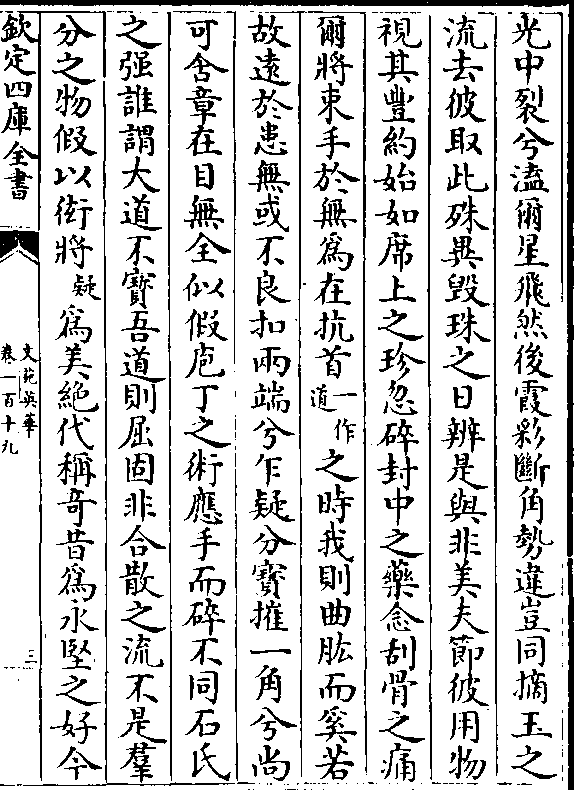 光中裂兮溘爾星飛然後霞彩斷角勢違豈同摘玉之
流去彼取此殊異毀珠之日辨是與非美夫節彼用物
視其豐約始如席上之珍忽碎封中之藥念刮骨之痛
爾將束手於無為在抗首一作道之時我則曲肱而奚若
故遠於患無或不良扣兩端兮乍疑分寶摧一角兮尚
可含章在目無全似假庖丁之術應手而碎不同石氏
之强誰謂大道不寳吾道則屈固非合散之流不是羣
分之物假以衒將疑為美絶代稱奇昔為永堅之好今
欽定四庫全書
文苑英華
卷一百十九
三